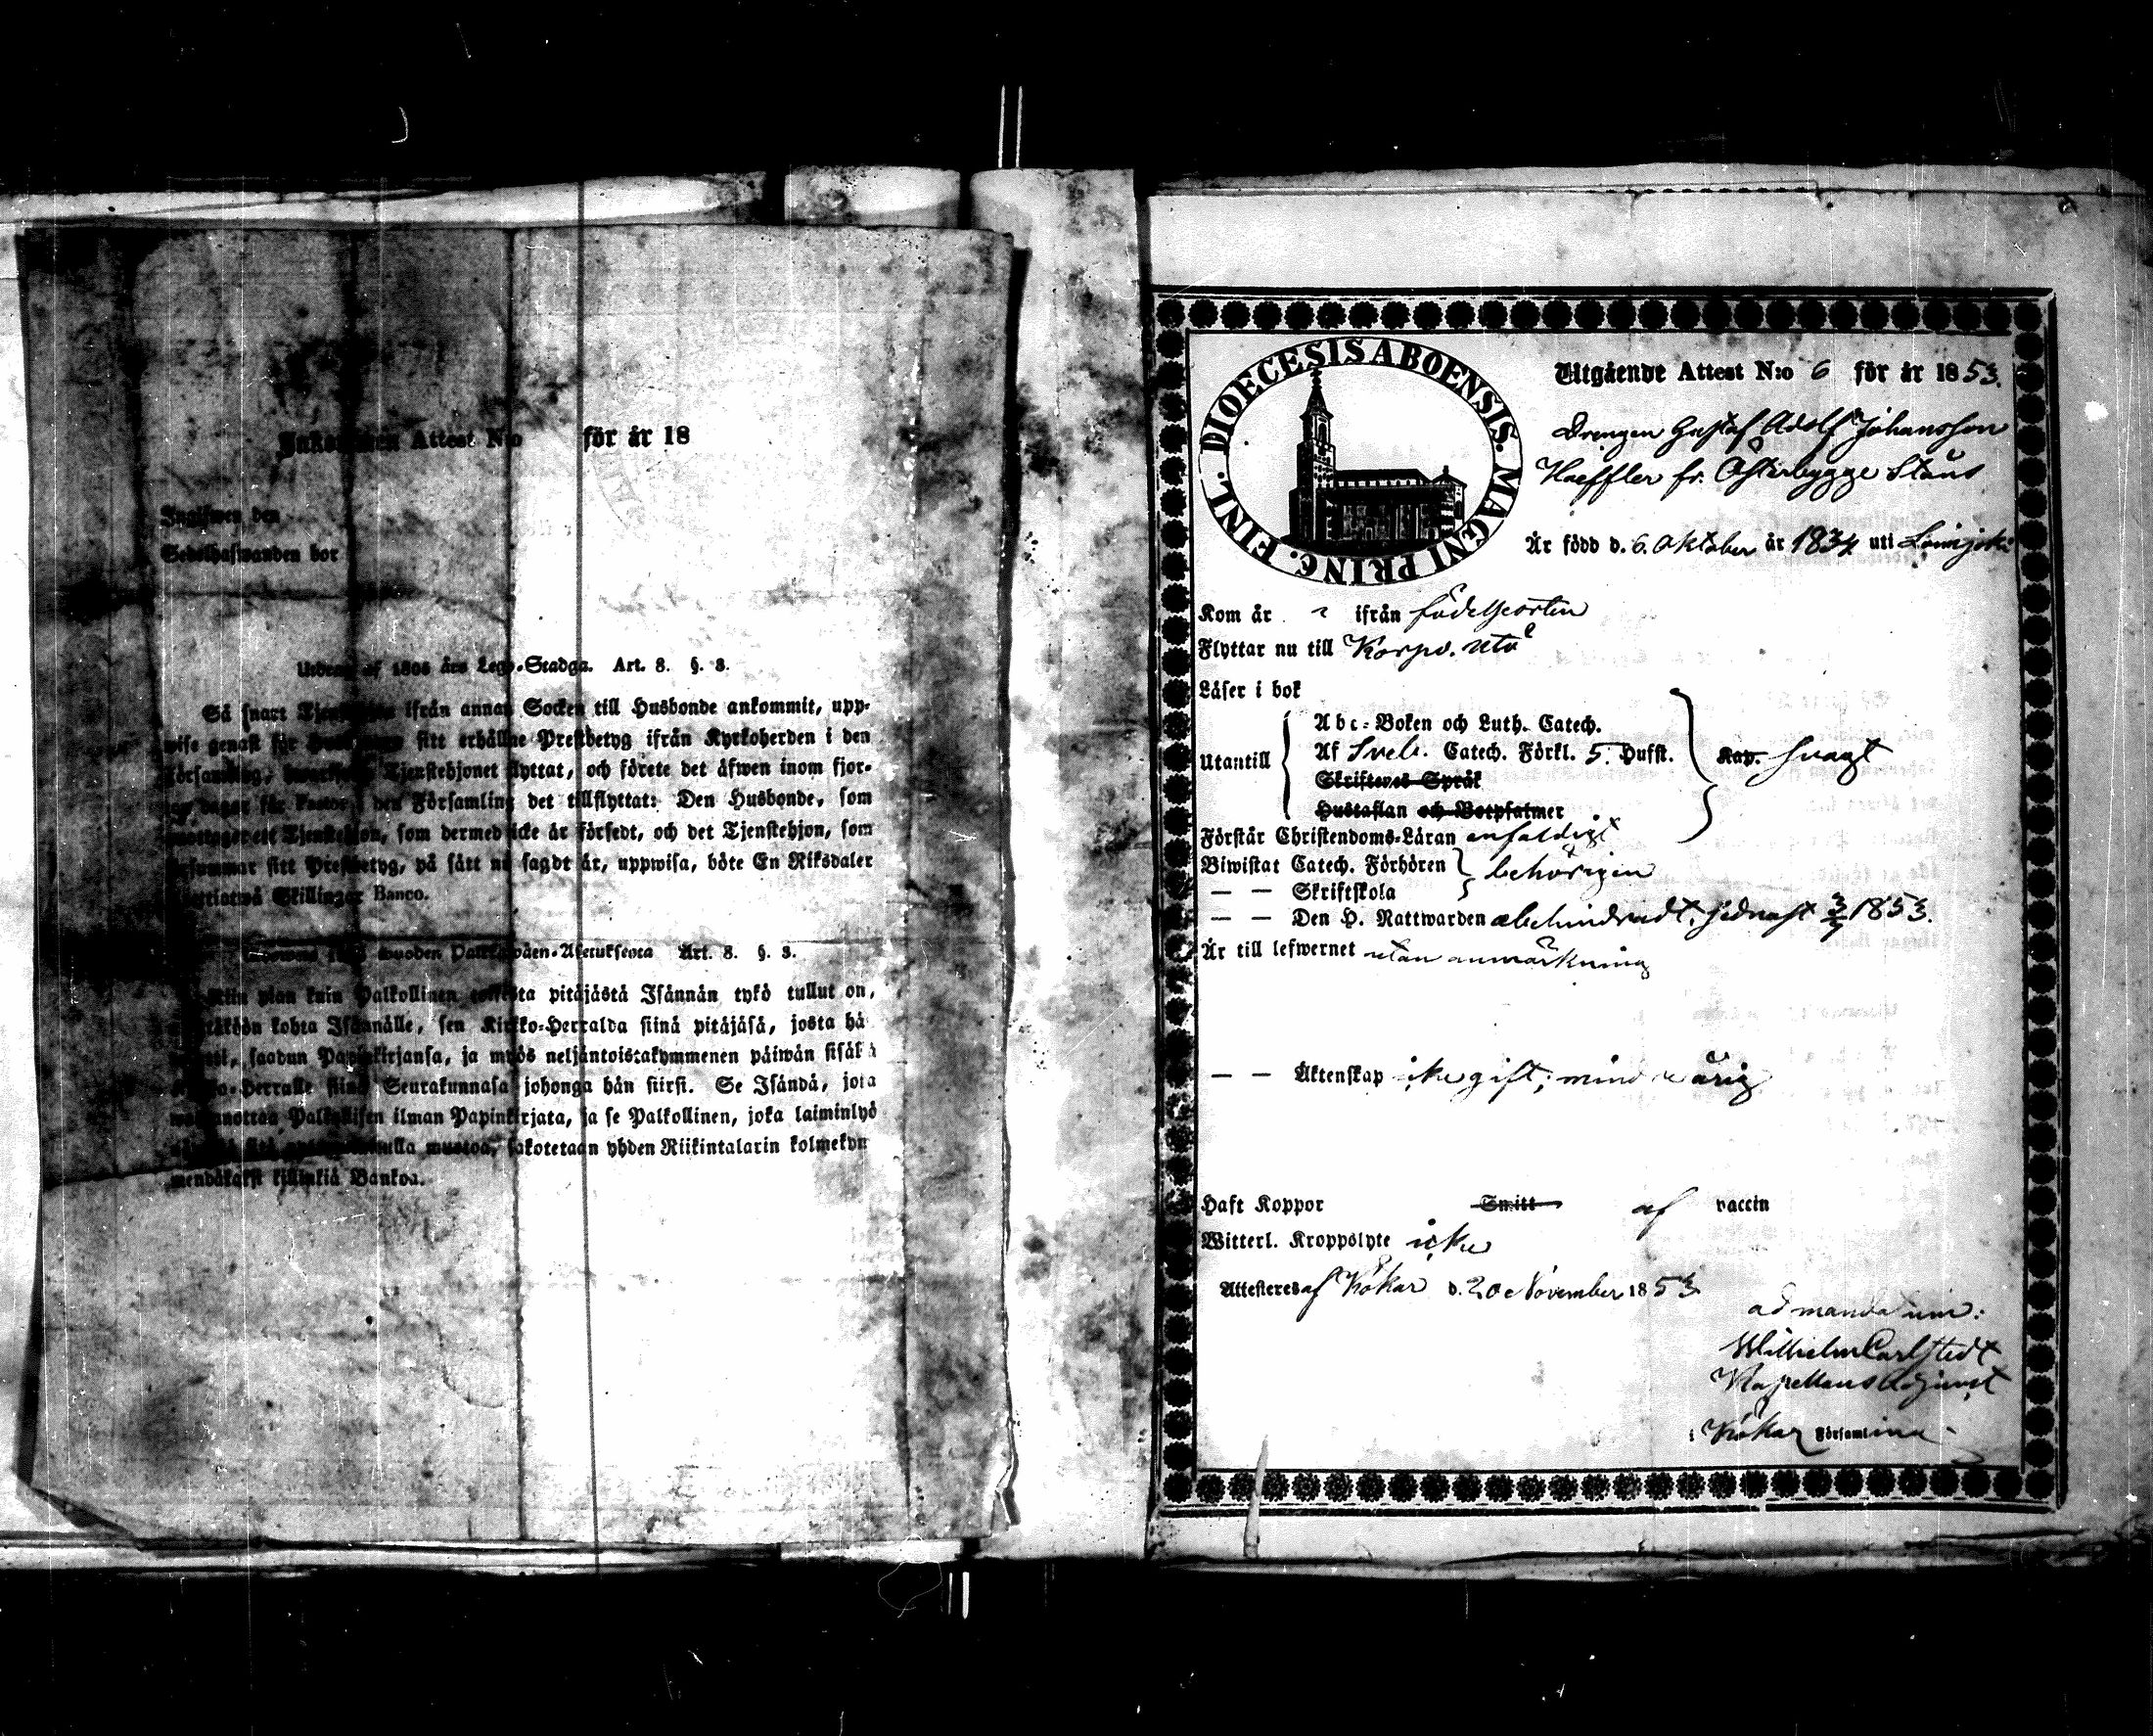 Inkommen Attest N:o för år 18
Ingifwen den
Sedelhafwanden bor
Utdrag af 1805 års Lego-Stadga. Art. 8. §. 3.
Så snart Tjenstehjon ifrån annan Socken till Husbonde ankommit, upp-
wise genast för Husbonden sitt erhållne Prestbetyg ifrån Kyrkoherden i den
Församling, hwarifrån Tjenstehjonet flyttat, och förete det äfwen inom fjor-
dagar för Pastor i den Församling det tillflyttat: Den Husbonde, som
emottager ett Tjenstehjon, som dermed icke är försedt, och det Tjenstehjon, som
försummar sitt Prestbetyg, på sätt nu sagdt är, uppwisa, böte En Riksdaler
Skillingar Banco.
wuoden Art. 8. §. 3.
Niin pian kuin Palkollinen toisesta pitäjästä Isännän tykö tullut on,
kohta Isännälle, sen Kirkko-Herralda siinä pitäjäsä, josta hä
saadun Papinkirjansa, ja myös neljäntoistakymmenen päiwän sisällä
Kirkko-Herralle siinä Seurakunnasa johonga hän siirsi. Se Isändä, jota
Palkollisen ilman Papinkirjata, ja se Palkollinen, joka laiminlyö
muotoa, sakotetaan yhden Riikintalarin kolmekym
mendäkaksi killinkiä Bankoa.
DIOECESIS ABOENSIS. MAGNI PRINC. FINL.
Utgående Attest N:o 6 för år 1853.
Drengen Gustaf Adolf Johansson
Haeffler fr. Österbygge Staus
Är född d. 6. Oktober år 1834 uti
Kom år ifrån födelseorten
Flyttar nu till Korpo. Utö
Läser i bok
Utantill
Abc-Boken och Luth. Catech.
Af Sveb. Catech. Förkl. 5. Hufst. Kap. svagt
Skriftenes Språk
Hustaflan och Botpsalmer
Förstår Christendoms-Läran enfaldigt
Biwistat Catech. Förhören behörigen
— — Skriftskola
— — Den H. Nattwarden obehindradt, sednast 3/7 1853.
Är till lefwernet utan anmärkning
— — Äktenskap icke gift; minderårig
Haft Koppor Smitt af vaccin
Witterl. Kroppslyte icke
Attesteres af Kökar d. 20 November 1853
ad mandatum:
Wilhelm Carlstedt
Kapellans Adjunct
i Kökar Församling